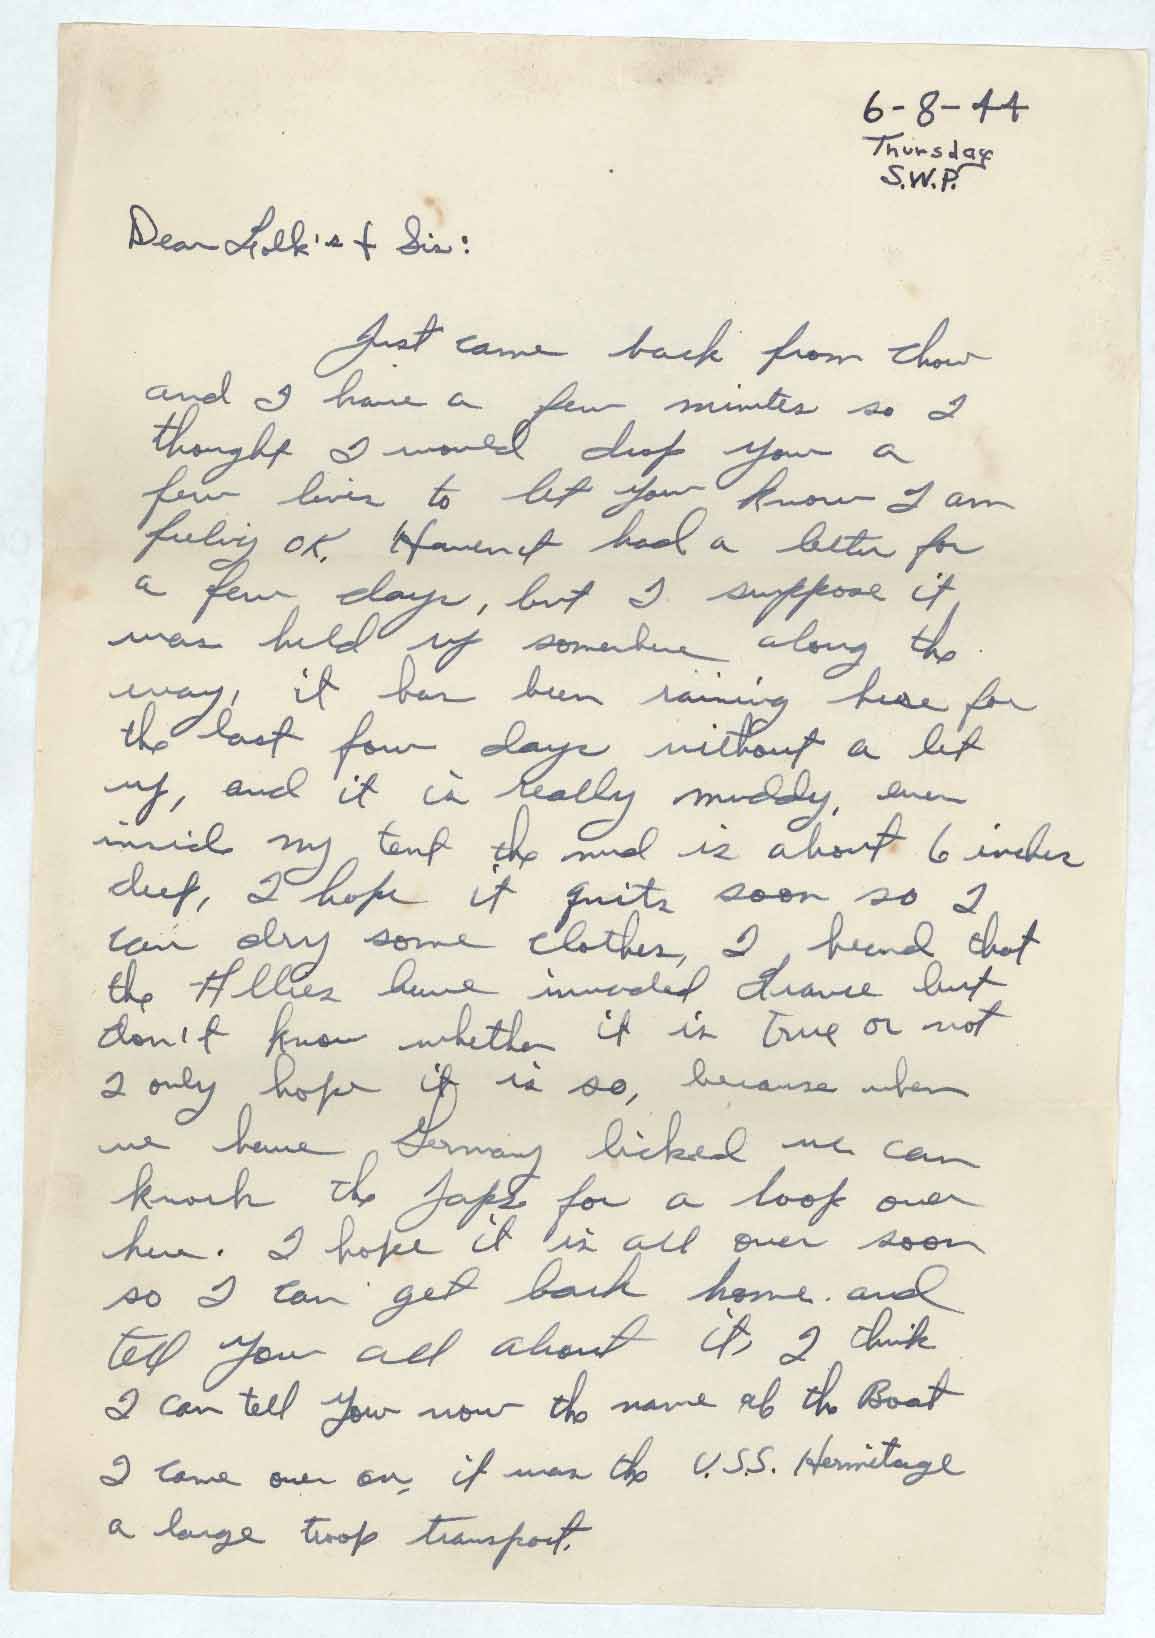 6-8-44
Thursday
S.W.P.
Dear Folk's & Sis:
Just came back from chow
and I have a few minutes so I
thought I would drop you a
few lines to let you know I am
feeling OK. Haven't had a letter for
a few days, but I suppose it
was held up somewhere along the
way, it has been raining here for
the last four days without a let
up, and it is really muddy, even
inside my tent the mud is about 6 inches
deep, I hope it quits soon so I
can dry some clothes, I heard that
the Allies have invaded France but
don't know whether it is true or not
I only hope it is so, because when
we have Germany licked we can
knock the Japs for a loop over
here. I hope it is all over soon
so I can get back home and
tell you all about it, I think
I can tell you now the name of the Boat
I came over on, it was the U.S.S. Hermitage
a large troop transport.